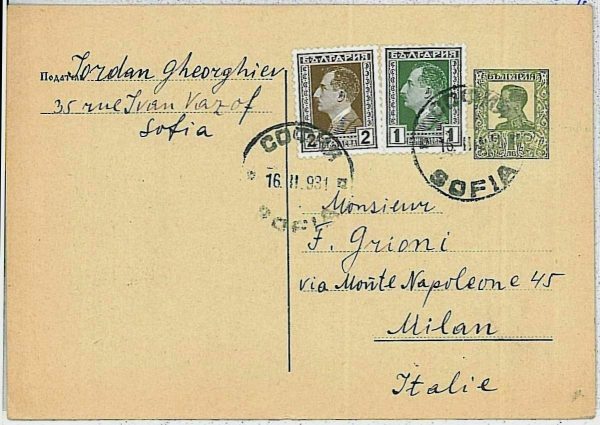 Податель
Iordan Gheorghiev
35 rue Ivan Vazof
Sofia
БЪЛГАРИЯ
2 2
БЪЛГАРИЯ
1 1
БЪЛГАРИЯ
1
СОФИЯ
16. II. 931
SOFIA
16. II
SOFIA
Monsieur
F. Grioni
via Monte Napoleone 45
Milan
Italie